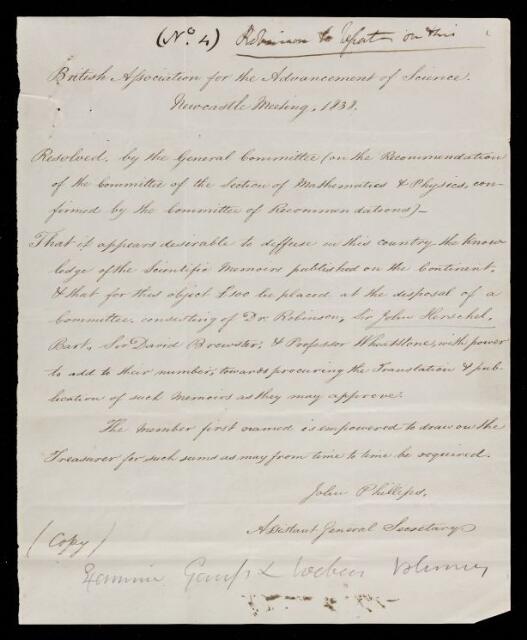 (No 4) Robinson to report on this
British Association for the Advancement of Science.
Newcastle Meeting, 1838.
Resolved, by the General Committee (on the Recommendation
of the Committee of the Section of Mathematics & Physics, con-
firmed by the Committee of Recommendations)—
That it appears desirable to diffuse in this country the know-
ledge of the Scientific Memoirs published on the Continent,
& that for this object £100 be placed at the disposal of a
Committee, consisting of Dr. Robinson, Sir John Herschel,
Bart, Sir David Brewster, & Professor Wheatstone, with power
to add to their number, towards procuring the Translation & pub-
lication of such Memoirs as they may approve.
The Member first named is empowered to draw on the
Treasurer for such sums as may from time to time be required.
John Phillips,
Assistant General Secretary
(Copy)
Gauss & Weber